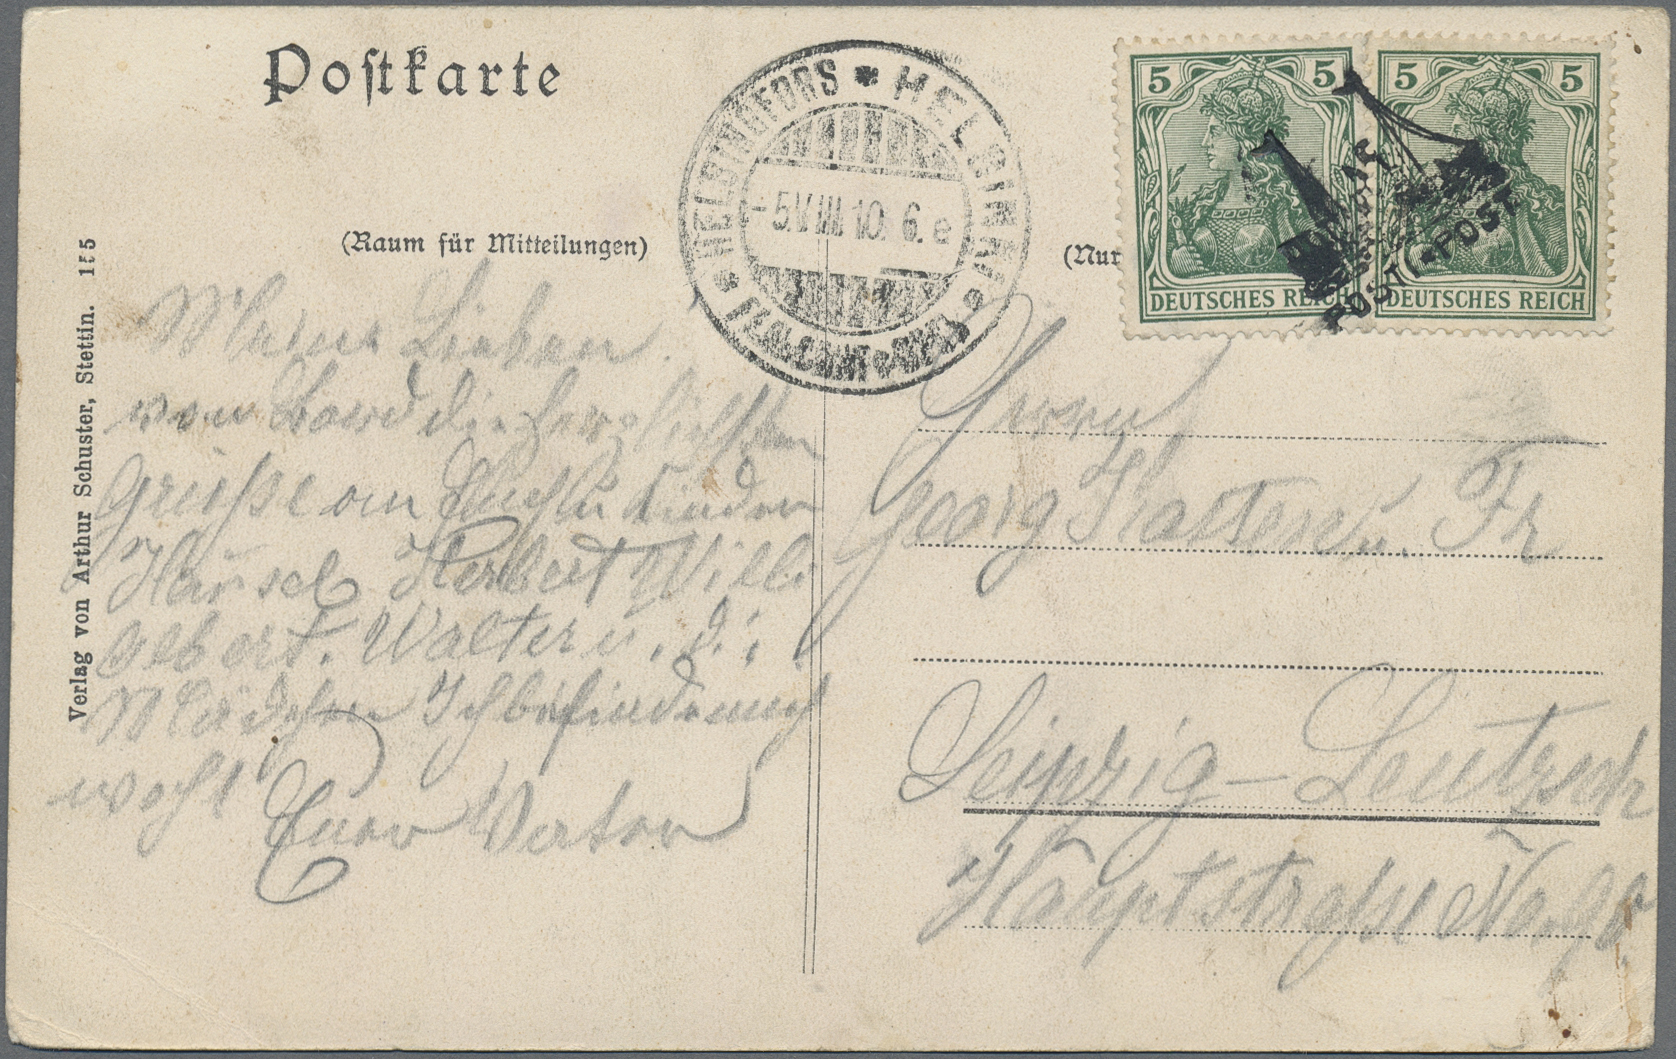 Postkarte
(Raum für Mitteilungen)
(Nur
Verlag von Arthur Schuster, Stettin. 155
HELSINGFORS * HELSINKI
-5.VIII.10. 6.e
5 5
DEUTSCHES REICH
5 5
DEUTSCHES REICH
POSTI-POST
Meine Lieben
von Bord die herzlichsten
Grüße an Euch u Kinder
Hänsel Herbert Willi
Walter u. d.
Mädchen Ich befinde mich
wohl
Euer Vater
Herrn
Georg u. Fr
Leipzig-Leutzsch
Hauptstraße No.